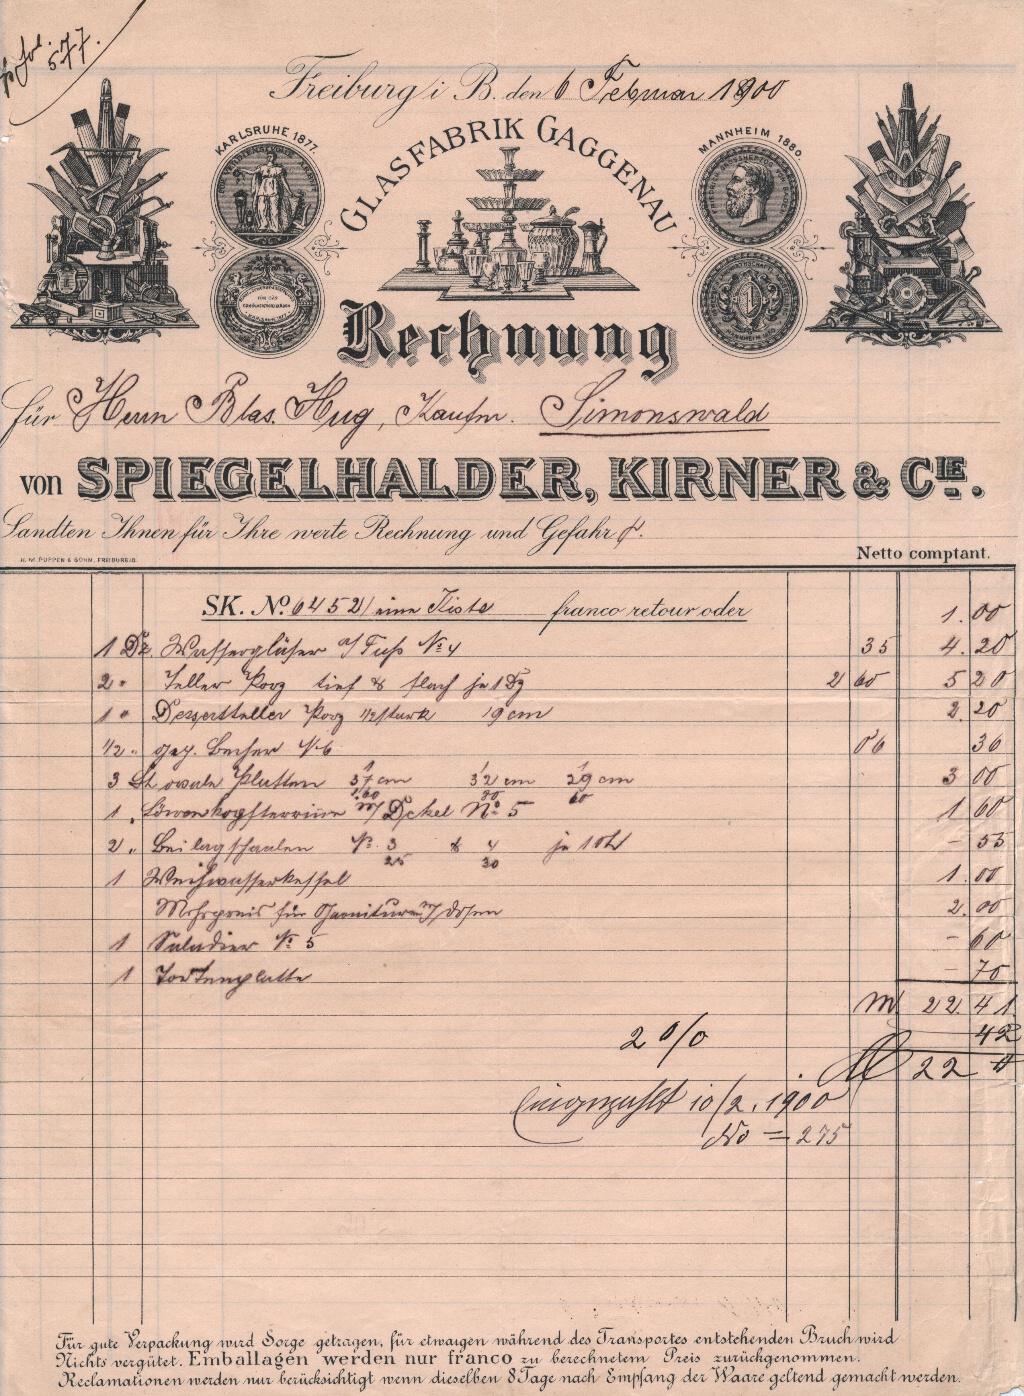 Fol. 577.
Freiburg i B. den 6 Februar 1900
KARLSRUHE 1877.
GLASFABRIK GAGGENAU
MANNHEIM 1880.
Rechnung
für Herrn Blas. Hug, Kaufm. Simonswald
von SPIEGELHALDER, KIRNER & CIE.
Sandten Ihnen für Ihre werte Rechnung und Gefahr
H. M. POPPEN & SOHN, FREIBURG i/B.
Netto comptant.
SK. No. 6452/ eine Kiste franco retour oder 1.00
1 Dz. Wassergläser a/ Fuss No 4 35 4.20
2 " Teller Porz tief & flach je 1 Dz 2 60 5 20
1 " Dessertteller Porz 1/2 stark 19 cm 2.20
1/2 " gep. Becher No 6 06 36
3 St ovale Platten 37 cm 32 cm 29 cm 3 00
1.60 80 60
1 " Löwenkopfterrine m/ Dekel No 5 1 60
2 " Beilagschaalen No. 3 & 4 je 1 St – 55
25 30
1 Weihwasserkessel 1.00
Mehrpreis für Garnituren m/ Dosen 2.00
1 Saladier No 5 – 60
1 Tortenplatte – 70
M 22.41
2 % 42
M 22
10/2. 1900
No = 275
Für gute Verpackung wird Sorge getragen, für etwaigen während des Transportes entstehenden Bruch wird
Nichts vergütet. Emballagen werden nur franco zu berechnetem Preis zurückgenommen.
Reclamationen werden nur berücksichtigt wenn dieselben 8 Tage nach Empfang der Waare geltend gemacht werden.